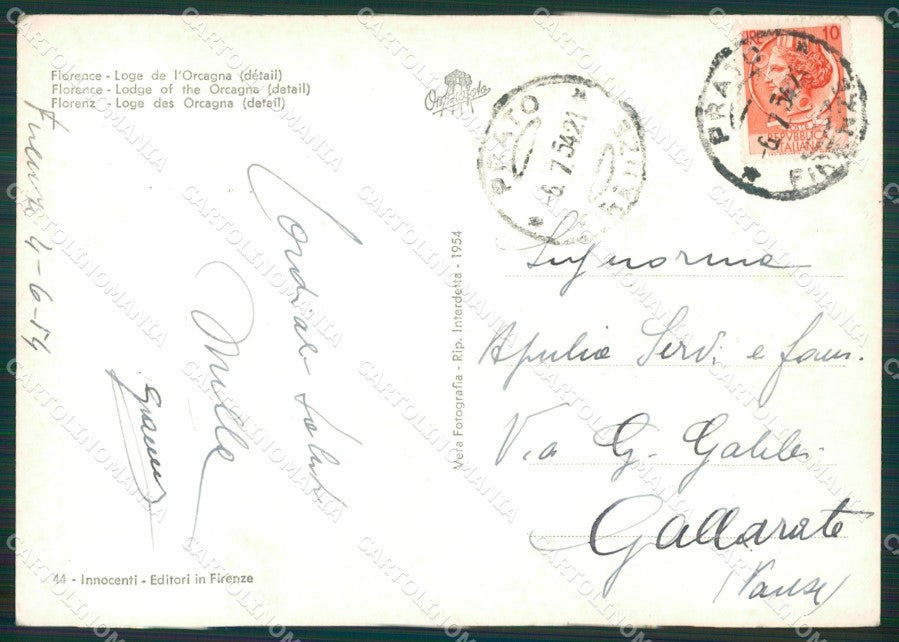 Florence - Loge de l'Orcagna (détail)
Florence - Lodge of the Orcagna (detail)
Florenz - Loge des Orcagna (detail)
Firenze 4-6-54
Cordiali saluti
44 - Innocenti - Editori in Firenze
Vera Fotografia - Rip. Interdetta - 1954
PRATO
-6.7.54.21
FIRENZE
LIRE 10
POSTE
REPVBBLICA
ITALIANA
PRATO
-6.7.54.21
FIRENZE
Signorina
Apulia Servi e fam.
Via G. Galilei
Gallarate
(Varese)
CARTOLINOMANIA